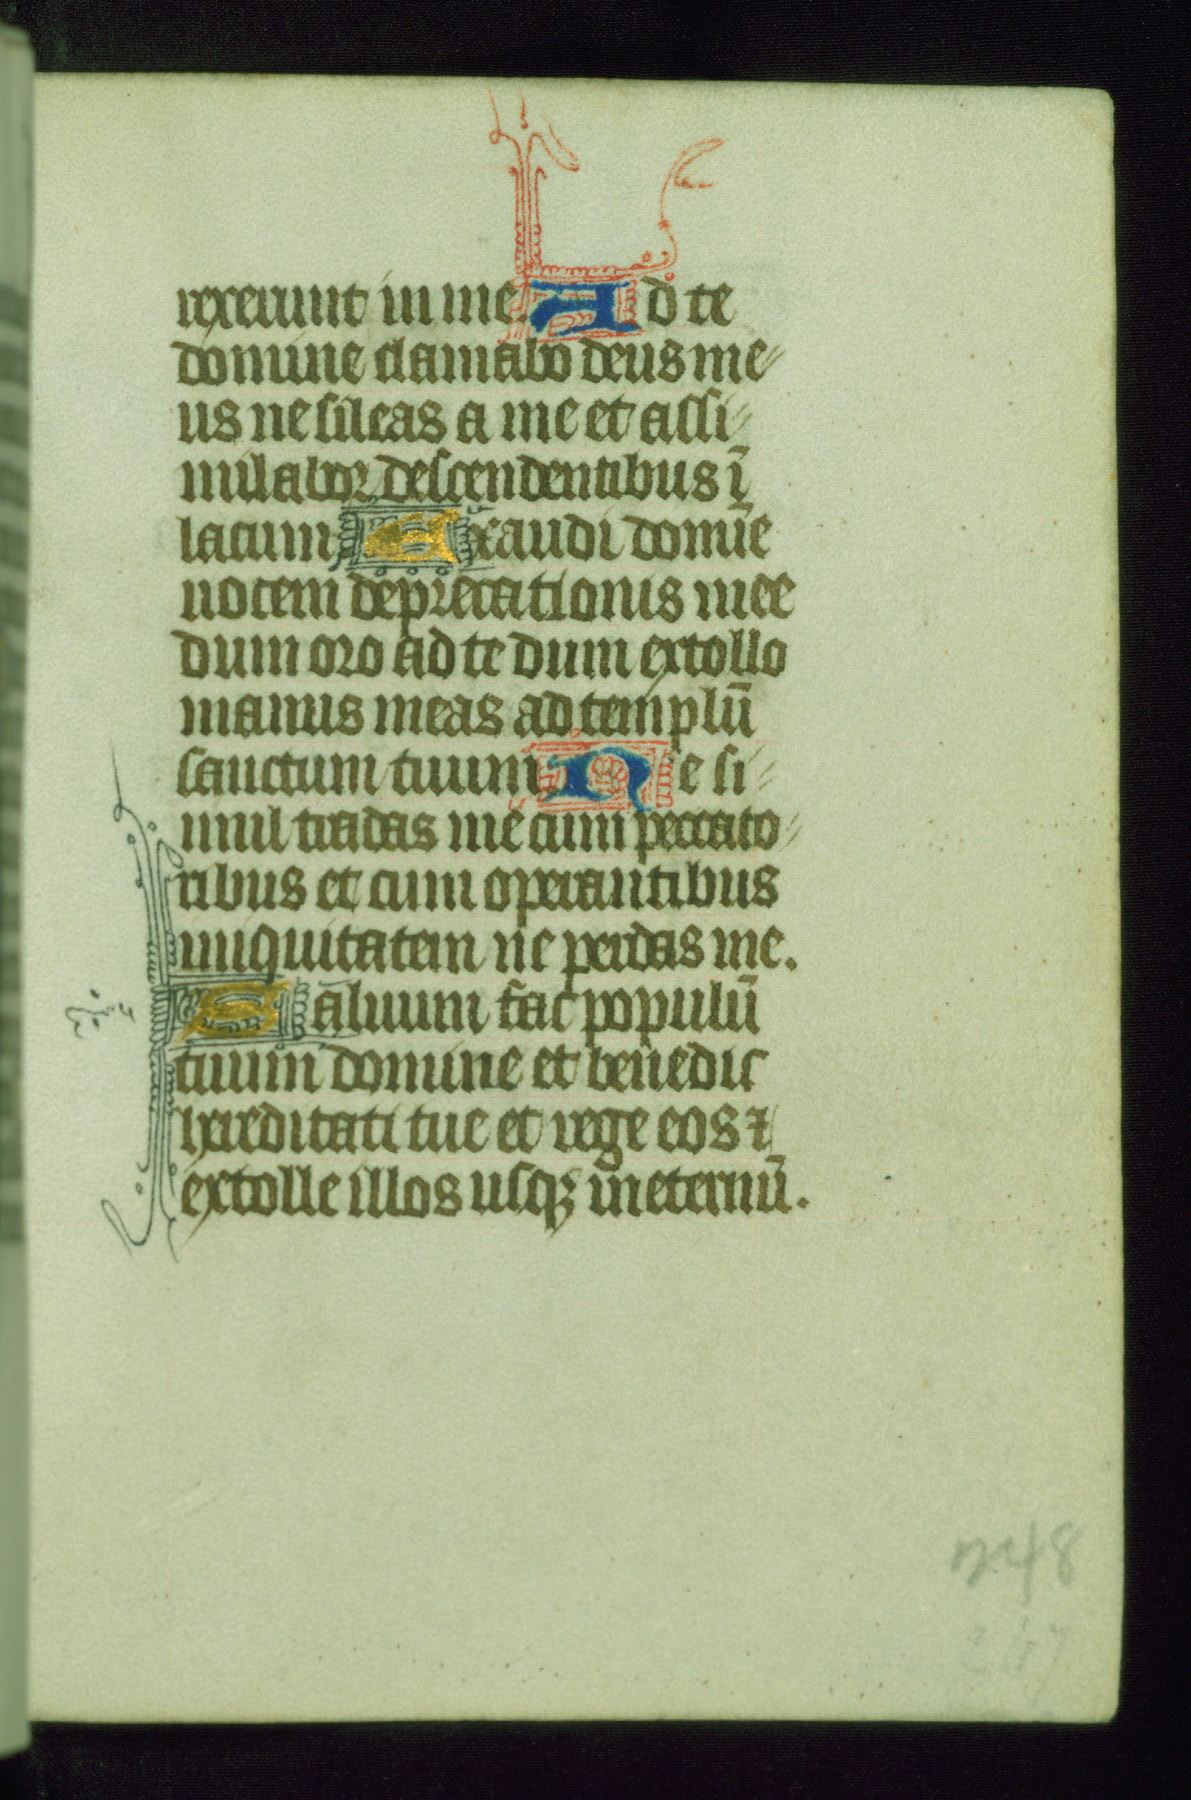 rexerunt in me. Ad te
domine clamabo deus me⸗
us ne sileas a me et assi⸗
milabor descendentibus ī
lacum Exaudi domīe
uocem deprecationis mee
dum oro ad te dum extollo
manus meas ad templū
sanctum tuum Ne si⸗
mul tradas me cum peccato⸗
ribus et cum operantibus
iniquitatem ne perdas me.
Saluum fac populū
tuum domine et benedic
hereditati tue et rege eos ⁊
extolle illos usqꝫ in eternū.
248
247